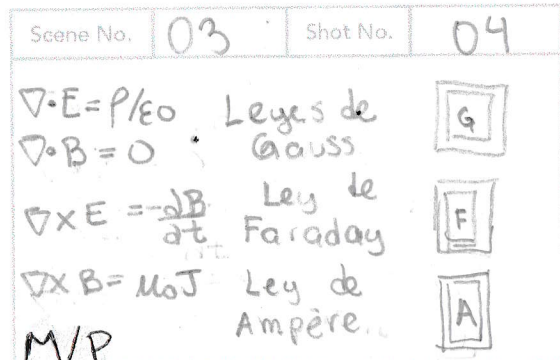 Scene No. 03 Shot No. 04
∇•E=ρ/εo Leyes de
∇•B=0 Gauss
G
∇×E =-∂B/∂t Ley de
Faraday
F
∇×B=μoJ Ley de
Ampère.
A
M/P